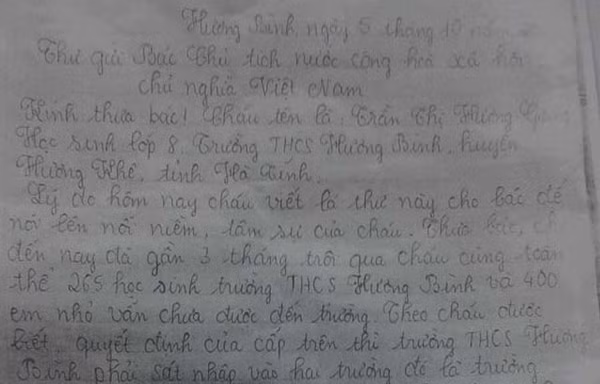 Hương Bình, ngày 5 tháng 10
Thư gửi Bác Chủ tịch nước cộng hoà xã hội
chủ nghĩa Việt Nam
Kính thưa bác! Cháu tên là: Trần Thị Hương
Học sinh lớp 8. Trường THCS Hương Bình, huyện
Hương Khê, tỉnh Hà Tĩnh.
Lý do hôm nay cháu viết lá thư này cho bác để
nói lên nỗi niềm, tâm sự của cháu. Thưa bác,
đến nay đã gần 3 tháng trôi qua cháu cùng toàn
thể 265 học sinh trường THCS Hương Bình và 400
em nhỏ vẫn chưa được đến trường. Theo cháu được
biết, quyết định của cấp trên thì trường THCS Hương
Bình phải sát nhập vào hai trường đó là trường